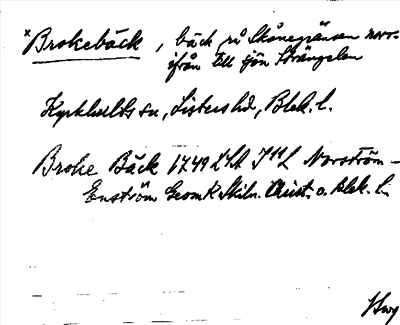 *Brokebäck, bäck på Skånegränsen norr-
ifrån till sjön Strängeln
Kyrkhults sn, Listers hd, Blek. l.
Broke Bäck 1749 LSA Norström-
Enström Geom K Skiln. Christ. o. Blek. l.